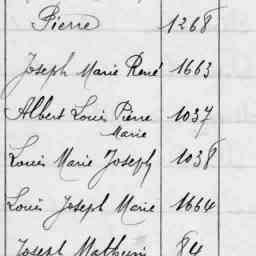 Pierre 1268
Joseph Marie René 1663
Albert Louis Pierre 1037
Marie
Louis Marie Joseph 1038
Louis Joseph Marie 1664
Joseph Mathurin 84